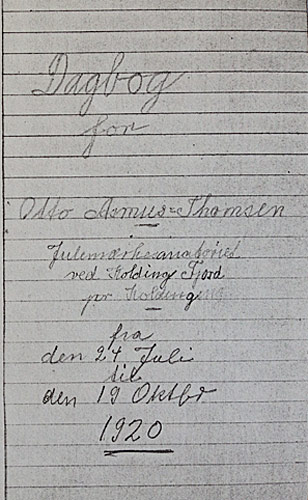 Dagbog
for
Otto Asmus=Thomsen
Julemærkesanatoriet
ved Kolding Fjord
pr Kolding
fra
den 24 Juli
til
den 19 Oktbr
1920